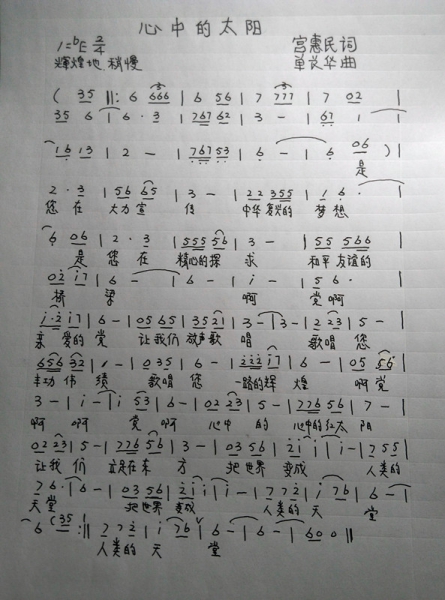 心中的太阳
1=♭E 2/4 宫惠民词
辉煌地 稍慢 单长华曲
( 35 ‖: 6 666 | 6 56 | 7 777 | 7 02 |
35 6 | 6 · 3 | 767 62 | 3 - | 67 1 |
16 13 | 2 - | 767 53 | 6 - | 6 06 ) |
是
2 · 3 | 56 65 | 3 - | 22 355 | 1 6 · |
您 在 大力宣 传 中华复兴的 梦想
6 06 | 2 · 3 | 555 56 | 3 - | 55 566 |
是 您 在 精心的探 求 和平友谊的
02 17 | 6 - | 6 - | i - | 5 6 · |
桥 梁 啊 党啊
i·2 i7 | 6 - | 05 65 | 35 2 | 3 - | 3 - | 2 23 | 5 - |
亲爱的 党 让我们 放声歌 唱 歌唱 您
656 32 | 1 - | 035 | 6 - | 222 i7 | 6 - | 05 56 |
丰功伟 绩 歌唱 您 一路的辉 煌 啊党
3 - | i - | i 53 | 6 - | 02 23 | 5 - | 776 56 | 7 - |
啊 啊 党 啊 心中 的 心中的红太 阳
02 23 | 5 - | 776 56 | 3 - | 03 56 | 2i i | i - | 7 55 |
让我 们 立足在东 方 把世界 变成 人类的
76 · | 6 - | 03 56 | 2i i | i - | 7 72 | i 76 | 6 - |
天堂 把世界 变成 人类的 天 堂
6 (35 :‖ 7 72 | i 76 | 6 - | 6 - | 60 0 ‖
人类的 天 堂